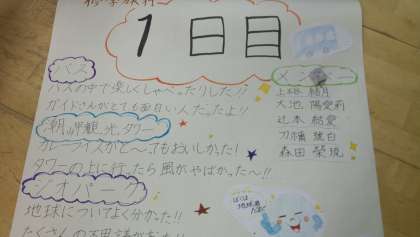 修学旅行
1日目
バス
バスの中で楽しくしゃべったりした!!
ガイドさんがとても面白い人だったよ!!
潮岬観光タワー
カレーライスがと〜ってもおいしかった!
タワーの上に行ったら風がやばかった〜!!
ジオパーク
地球についてよく分かった!!
たくさんの不思議があった!!
メンバー
上桜 結月
大地 陽愛莉
辻本 結愛
琥白
森田 榮現
ぼくは地球君
だよ